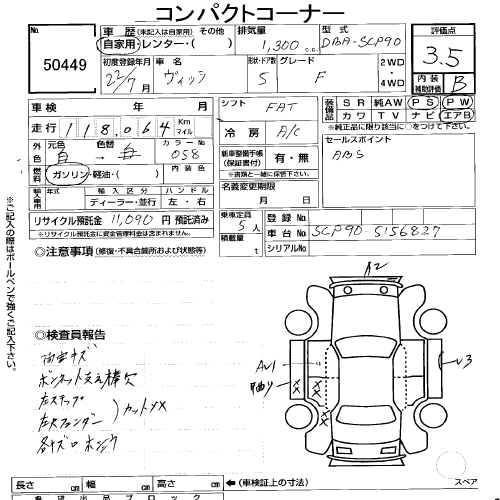 コンパクトコーナー
No. 50449
車歴 (未記入は自家用) その他
自家用・レンター・( )
排気量 1,300 c.c.
型式 DBA-SCP90
評価点 3.5
初度登録年月 22/7月
車名 ヴィッツ
形状・ドア数 5
グレード F
2WD・4WD
内装補助評価 B
車検 年 月
シフト FAT
装備品 SR 純AW PS PW
カワ TV ナビ エアB
※純正品に限り該当に○をつけて下さい。
走行 118,064 Km マイル
冷房 A/C
セールスポイント
ABS
外色 白 色替 白
カラーNo 058
新車整備手帳(保証書付) 有・無
※書類と一緒に保管下さい。
燃料 ガソリン・軽油・( )
内装色
名義変更期限 月 日
輸入車用 輸入区分 ディーラー・並行
ハンドル 左・右
リサイクル預託金 11,090 円 預託済み
※リサイクル預託金に資金管理料金は含まれません。
乗車定員 5人
積載量 t
登録No
車台No SCP90-5156827
シリアルNo
◎注意事項 (修復・不具合箇所および状態等)
※ご記入の際はボールペンで強くご記入下さい。
A2
AU1
U3
◎検査員報告
内室キズ
ボンネット支え棒欠
左ステップ
左Rフェンダー
カットメX
長さ cm 幅 cm 高さ cm ←(車検証上の寸法)
スペア